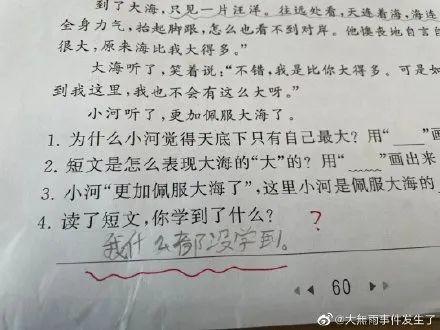 到了大海，只见一片汪洋。往远处看，天连着海，海连
全身力气，抬起脚跟，怎么也看不到对岸。他懊丧地自言自
很大，原来海比我大得多。”
大海听了，笑着说：“不错，我是比你大得多。可是如
到我这里，我也不会有这么大呀。”
小河听了，更加佩服大海了。
1. 为什么小河觉得天底下只有自己最大？用“____”画
2. 短文是怎么表现大海的“大”的？用“﹏﹏”画出来
3. 小河“更加佩服大海了”，这里小河是佩服大海的
4. 读了短文，你学到了什么？ ?
我什么都没学到。
60
@大無雨事件发生了